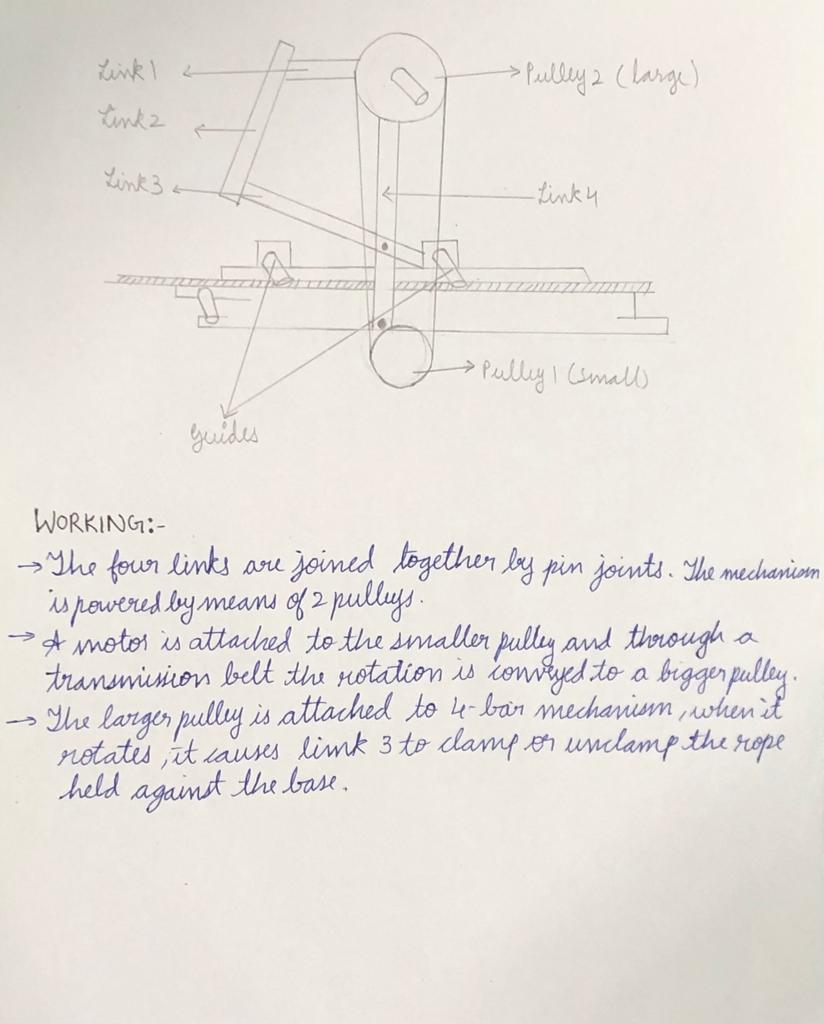 Link 1
Pulley 2 (large)
Link 2
Link 3
Link 4
Pulley 1 (small)
Guides
WORKING:-
→ The four links are joined together by pin joints. The mechanism
is powered by means of 2 pulleys.
→ A motor is attached to the smaller pulley and through a
transmission belt the rotation is conveyed to a bigger pulley.
→ The larger pulley is attached to 4-bar mechanism, when it
rotates, it causes link 3 to clamp or unclamp the rope
held against the base.